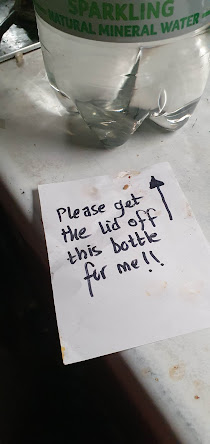 SPARKLING
NATURAL MINERAL WATER
Please get
the lid off
this bottle
for me!!